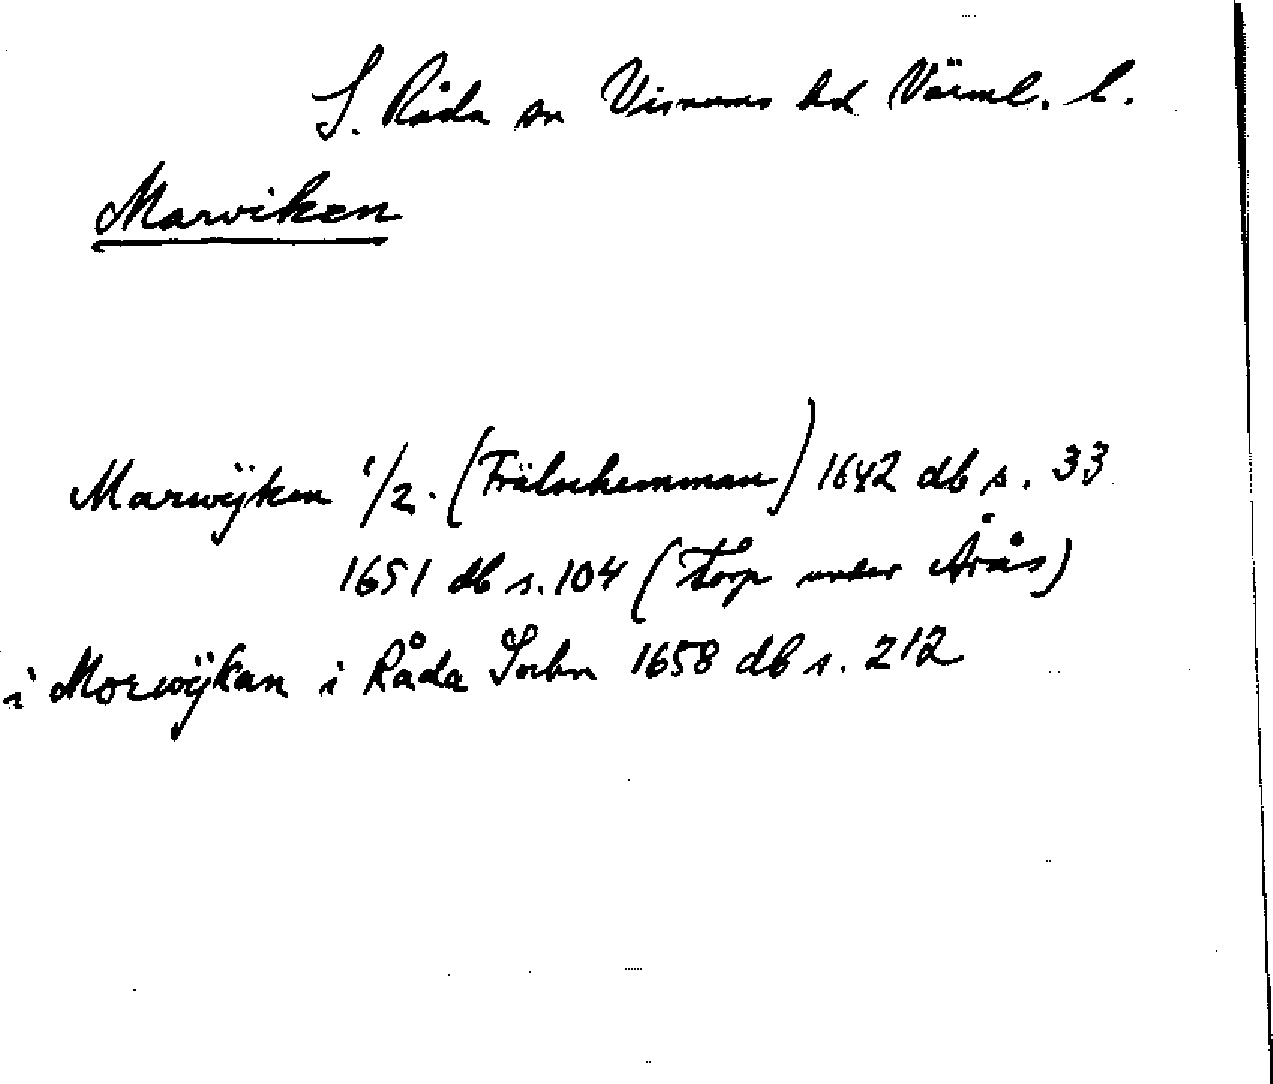 S. Råda sn Visnums hd Värml. l.
Marviken
Marwÿken 1/2. (Frälsehemman) 1642 db s. 33
1651 db s. 104 (Torp under Årås)
i Morwÿkan i Råda Sochn 1658 db s. 212